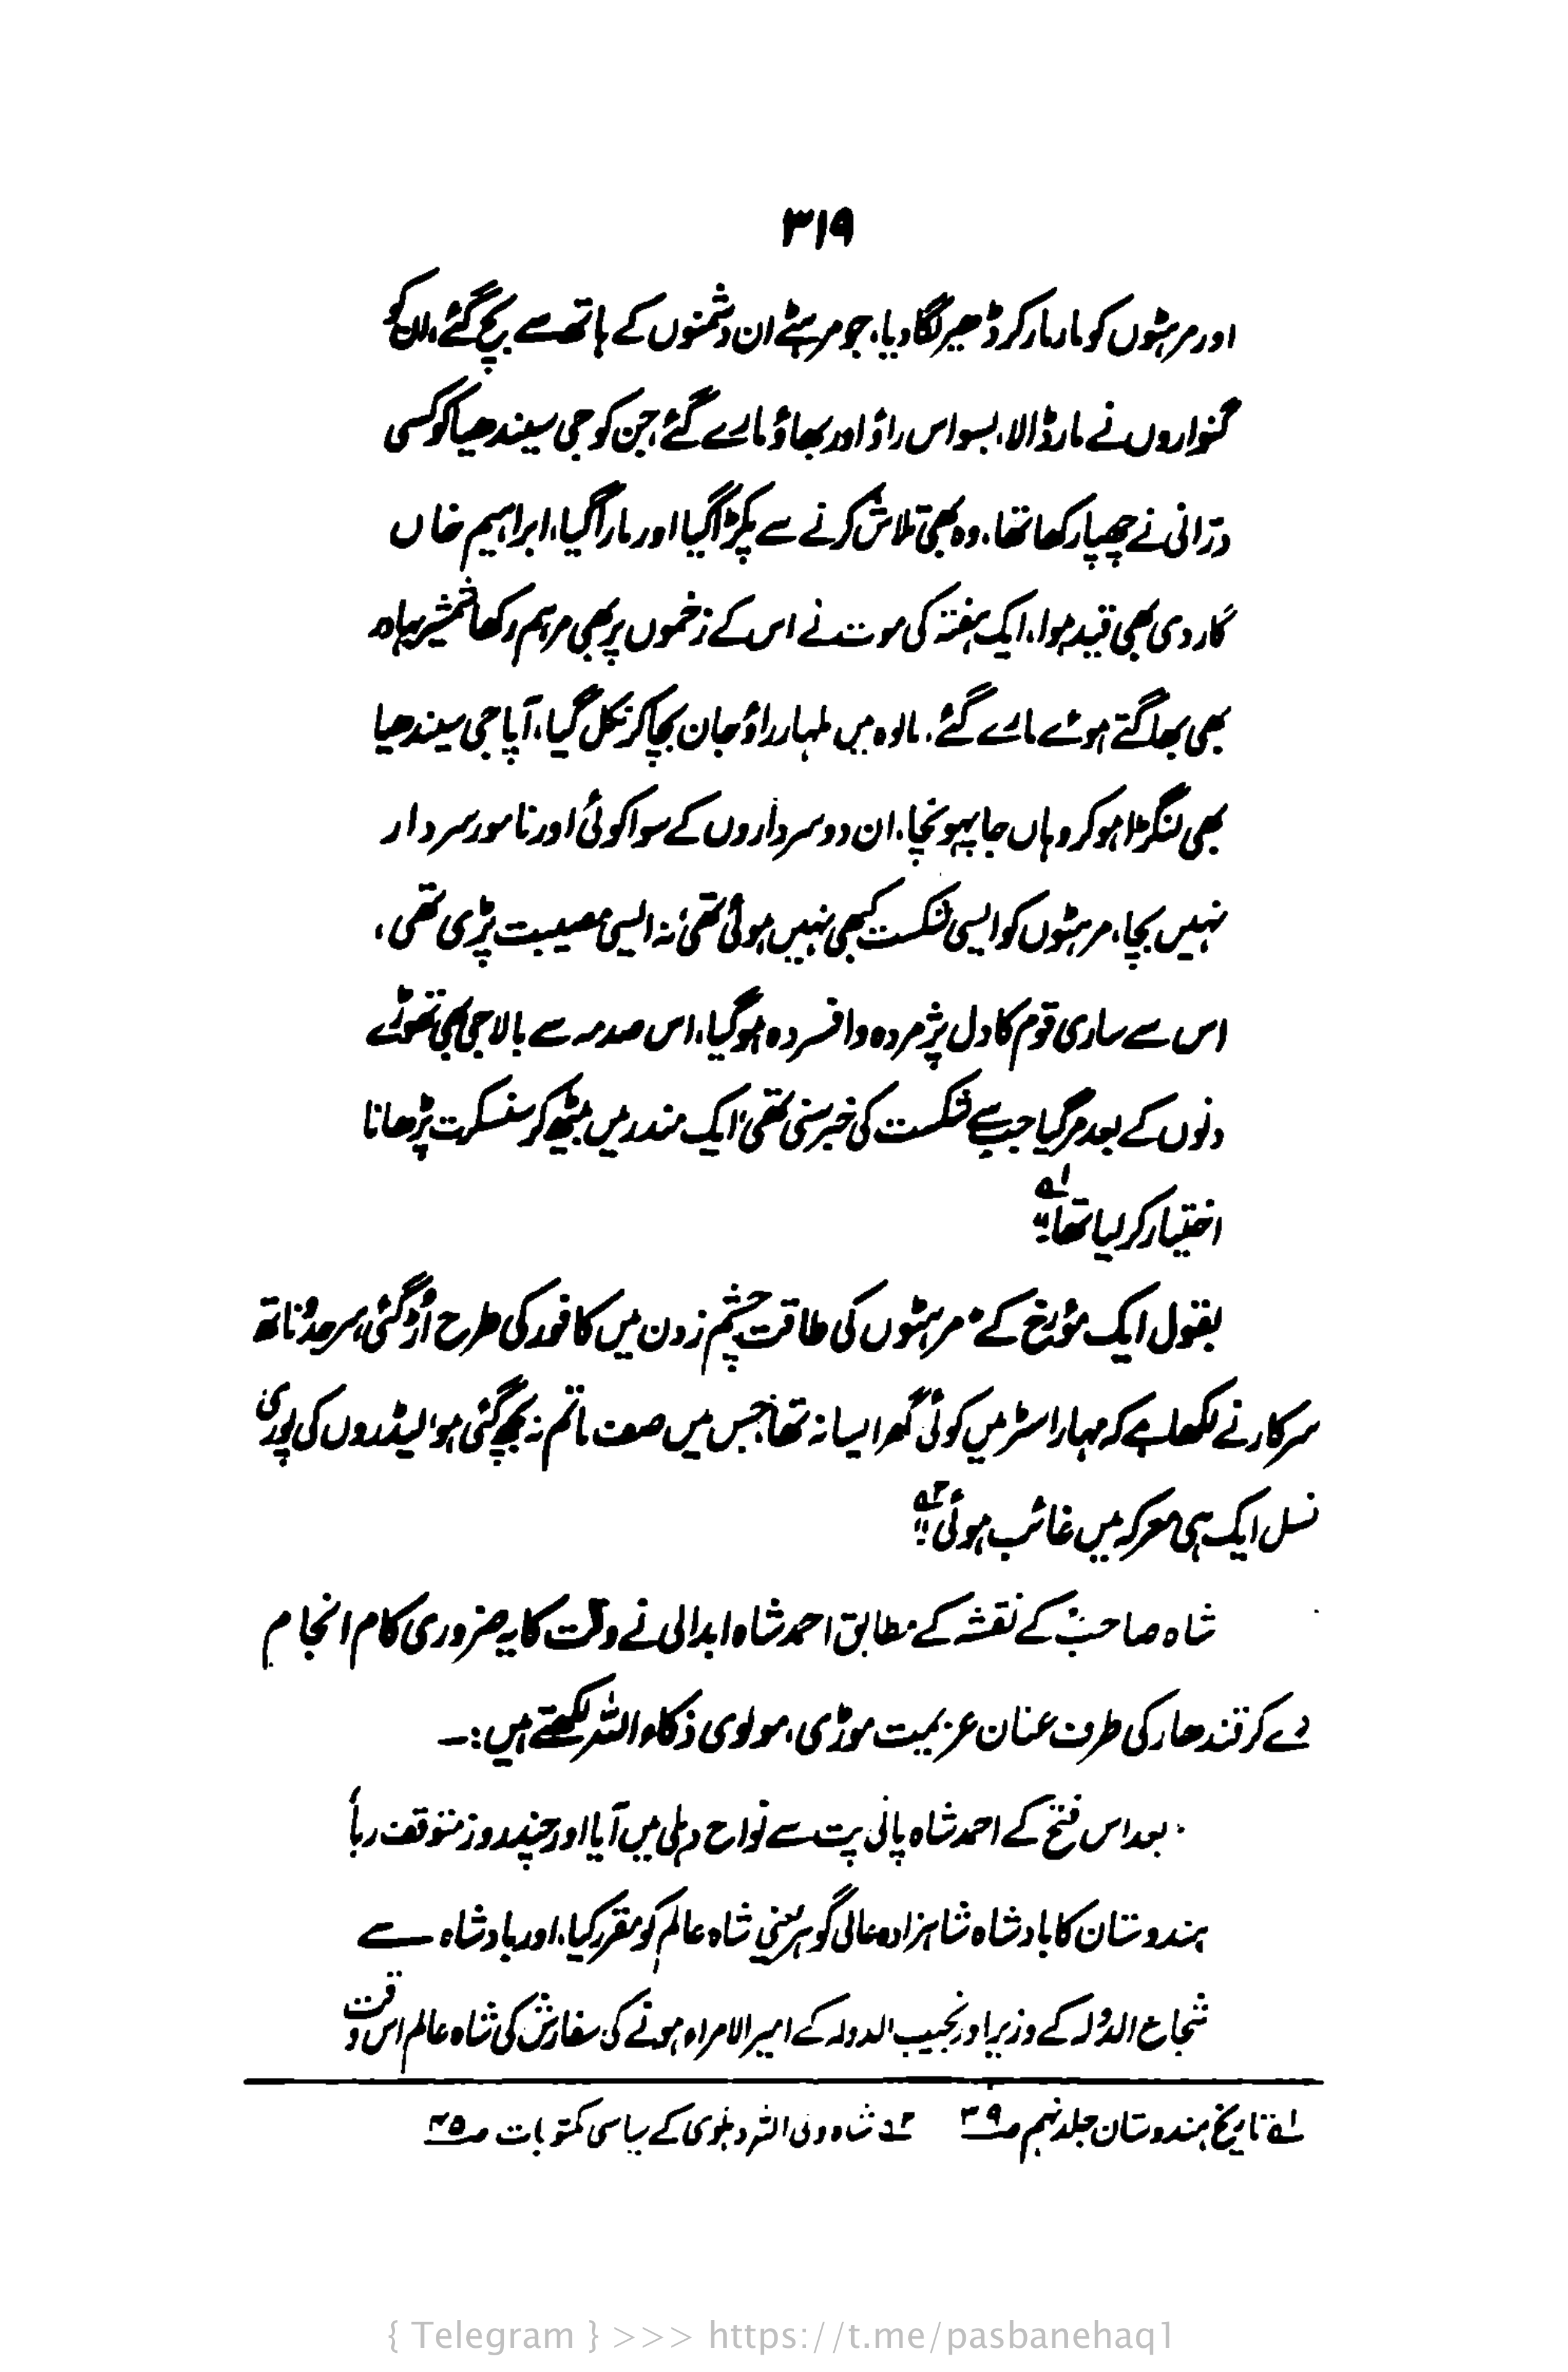 ۳۱۹
اور مرہٹوں کو مار مار کر ڈھیر لگا دیا، جو مرہٹے ان دشمنوں کے ہاتھ سے بچ گئے، ان کو
گنواروں نے مار ڈالا، بسواس راؤ اور بھاؤ مارے گئے، جن کو جی سیندھیا کو کسی
درّانی نے چھپا رکھا تھا، وہ بھی تلاش کرنے سے پکڑا گیا اور مارا گیا، ابراہیم خاں
گاردی بھی قید ہوا، ایک ہفتہ کی موت نے اس کے زخموں پر بھی مرہم رکھا، شمشیر بہادر
بھی بھاگتے ہوئے مارے گئے، مالوہ میں ملہار راؤ جان بچا کر نکل گیا، آپا جی سیندھیا
بھی لنگڑا ہو کر وہاں جا پہونچا، ان دو سرداروں کے سوا کوئی اور نامور سردار
نہیں بچا، مرہٹوں کو ایسی شکست کبھی نہیں ہوئی تھی، نہ ایسی مصیبت پڑی تھی،
اس سے ساری قوم کا دل پژمردہ و افسردہ ہو گیا، اس صدمہ سے بالا جی بھی تھوڑے
دنوں کے بعد مر گیا جب سے شکست کی خبر سنی تھی، ایک مندر میں بیٹھ کر سنسکرت پڑھانا
اختیار کر لیا تھا۔" ؎۱
بقول ایک مؤرخ کے "مرہٹوں کی طاقت چشم زدن میں کافور کی طرح اُڑ گئی، سر جدُناتھ
سرکار نے لکھا ہے کہ مہاراسٹر میں کوئی گھر ایسا نہ تھا، جس میں صف ماتم نہ بچھ گئی ہو، لیڈروں کی پوری
نسل ایک ہی معرکہ میں غائب ہوئی۔" ؎۲
شاہ صاحبؒ کے نقشہ کے مطابق احمد شاہ ابدالی نے وقت کا یہ ضروری کام انجام
دے کر قندھار کی طرف عنان عزیمت موڑی، مولوی ذکاء اللہ لکھتے ہیں:۔
"بعد اس فتح کے احمد شاہ پانی پت سے نواح دہلی میں آیا اور چند روز متوقف رہا،
ہندوستان کا بادشاہ شاہزادہ عالی گوہر یعنی شاہ عالم کو مقرر کیا، اور بادشاہ سے
شجاع الدولہ کے وزیر اور نجیب الدولہ کے امیر الامراء ہونے کی سفارش کی شاہ عالم اس وقت
؎۱ تاریخ ہندوستان جلد نہم ص۳۹ ؎۲ شاہ ولی اللہ دہلوی کے سیاسی مکتوبات ص۴۵
{ Telegram } >>> https://t.me/pasbanehaq1